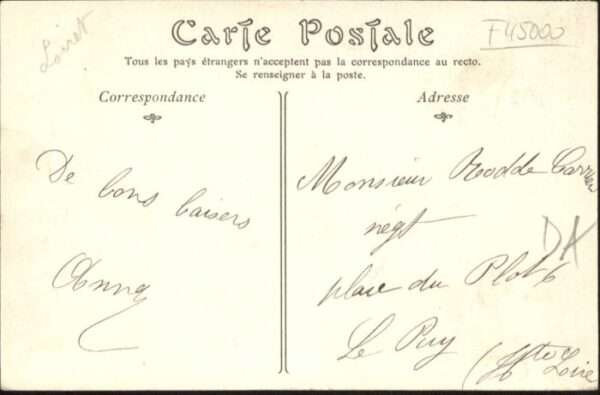 Loiret
F45000
Carte Postale
Tous les pays étrangers n'acceptent pas la correspondance au recto.
Se renseigner à la poste.
Correspondance
Adresse
De bons baisers
Anna
Monsieur Rodde Carrier
négt
place du Plot 6
Le Puy
(Hte Loire
DX